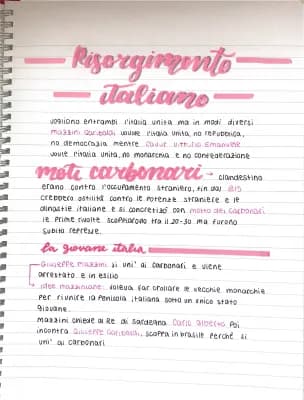 Risorgimento
italiano
vogliono entrambi l'italia unita ma in modi diversi
mazzini Garibaldi volve l'italia unita, no repubblica,
no democrazia mentre Cavour Vittorio Emanuele
volve l'italia unita, no monarchia e no confederazione
moti carbonari → clandestino
erano contro l'occupamento straniero, fin dal 1815
crebbero ostilità contro le potenze straniere e le
dinastie italiane e si concretizò con motto dei carbonari
le prime rivolte scoppiarono tra il 20-30 ma furono
subito represse.
la giovane italia
Giuseppe mazzini si uni' ai carbonari e viene
arrestato e in esilio
idee mazziniane: voleva far crollare le vecchie monarchie
per riunire la Penisola italiana sotto un unico stato
giovane.
mazzini chiede al Re di Sardegna Carlo Alberto poi
incontra Giuseppe Garibaldi, scoppia in brasile perché si
uni' ai carbonari